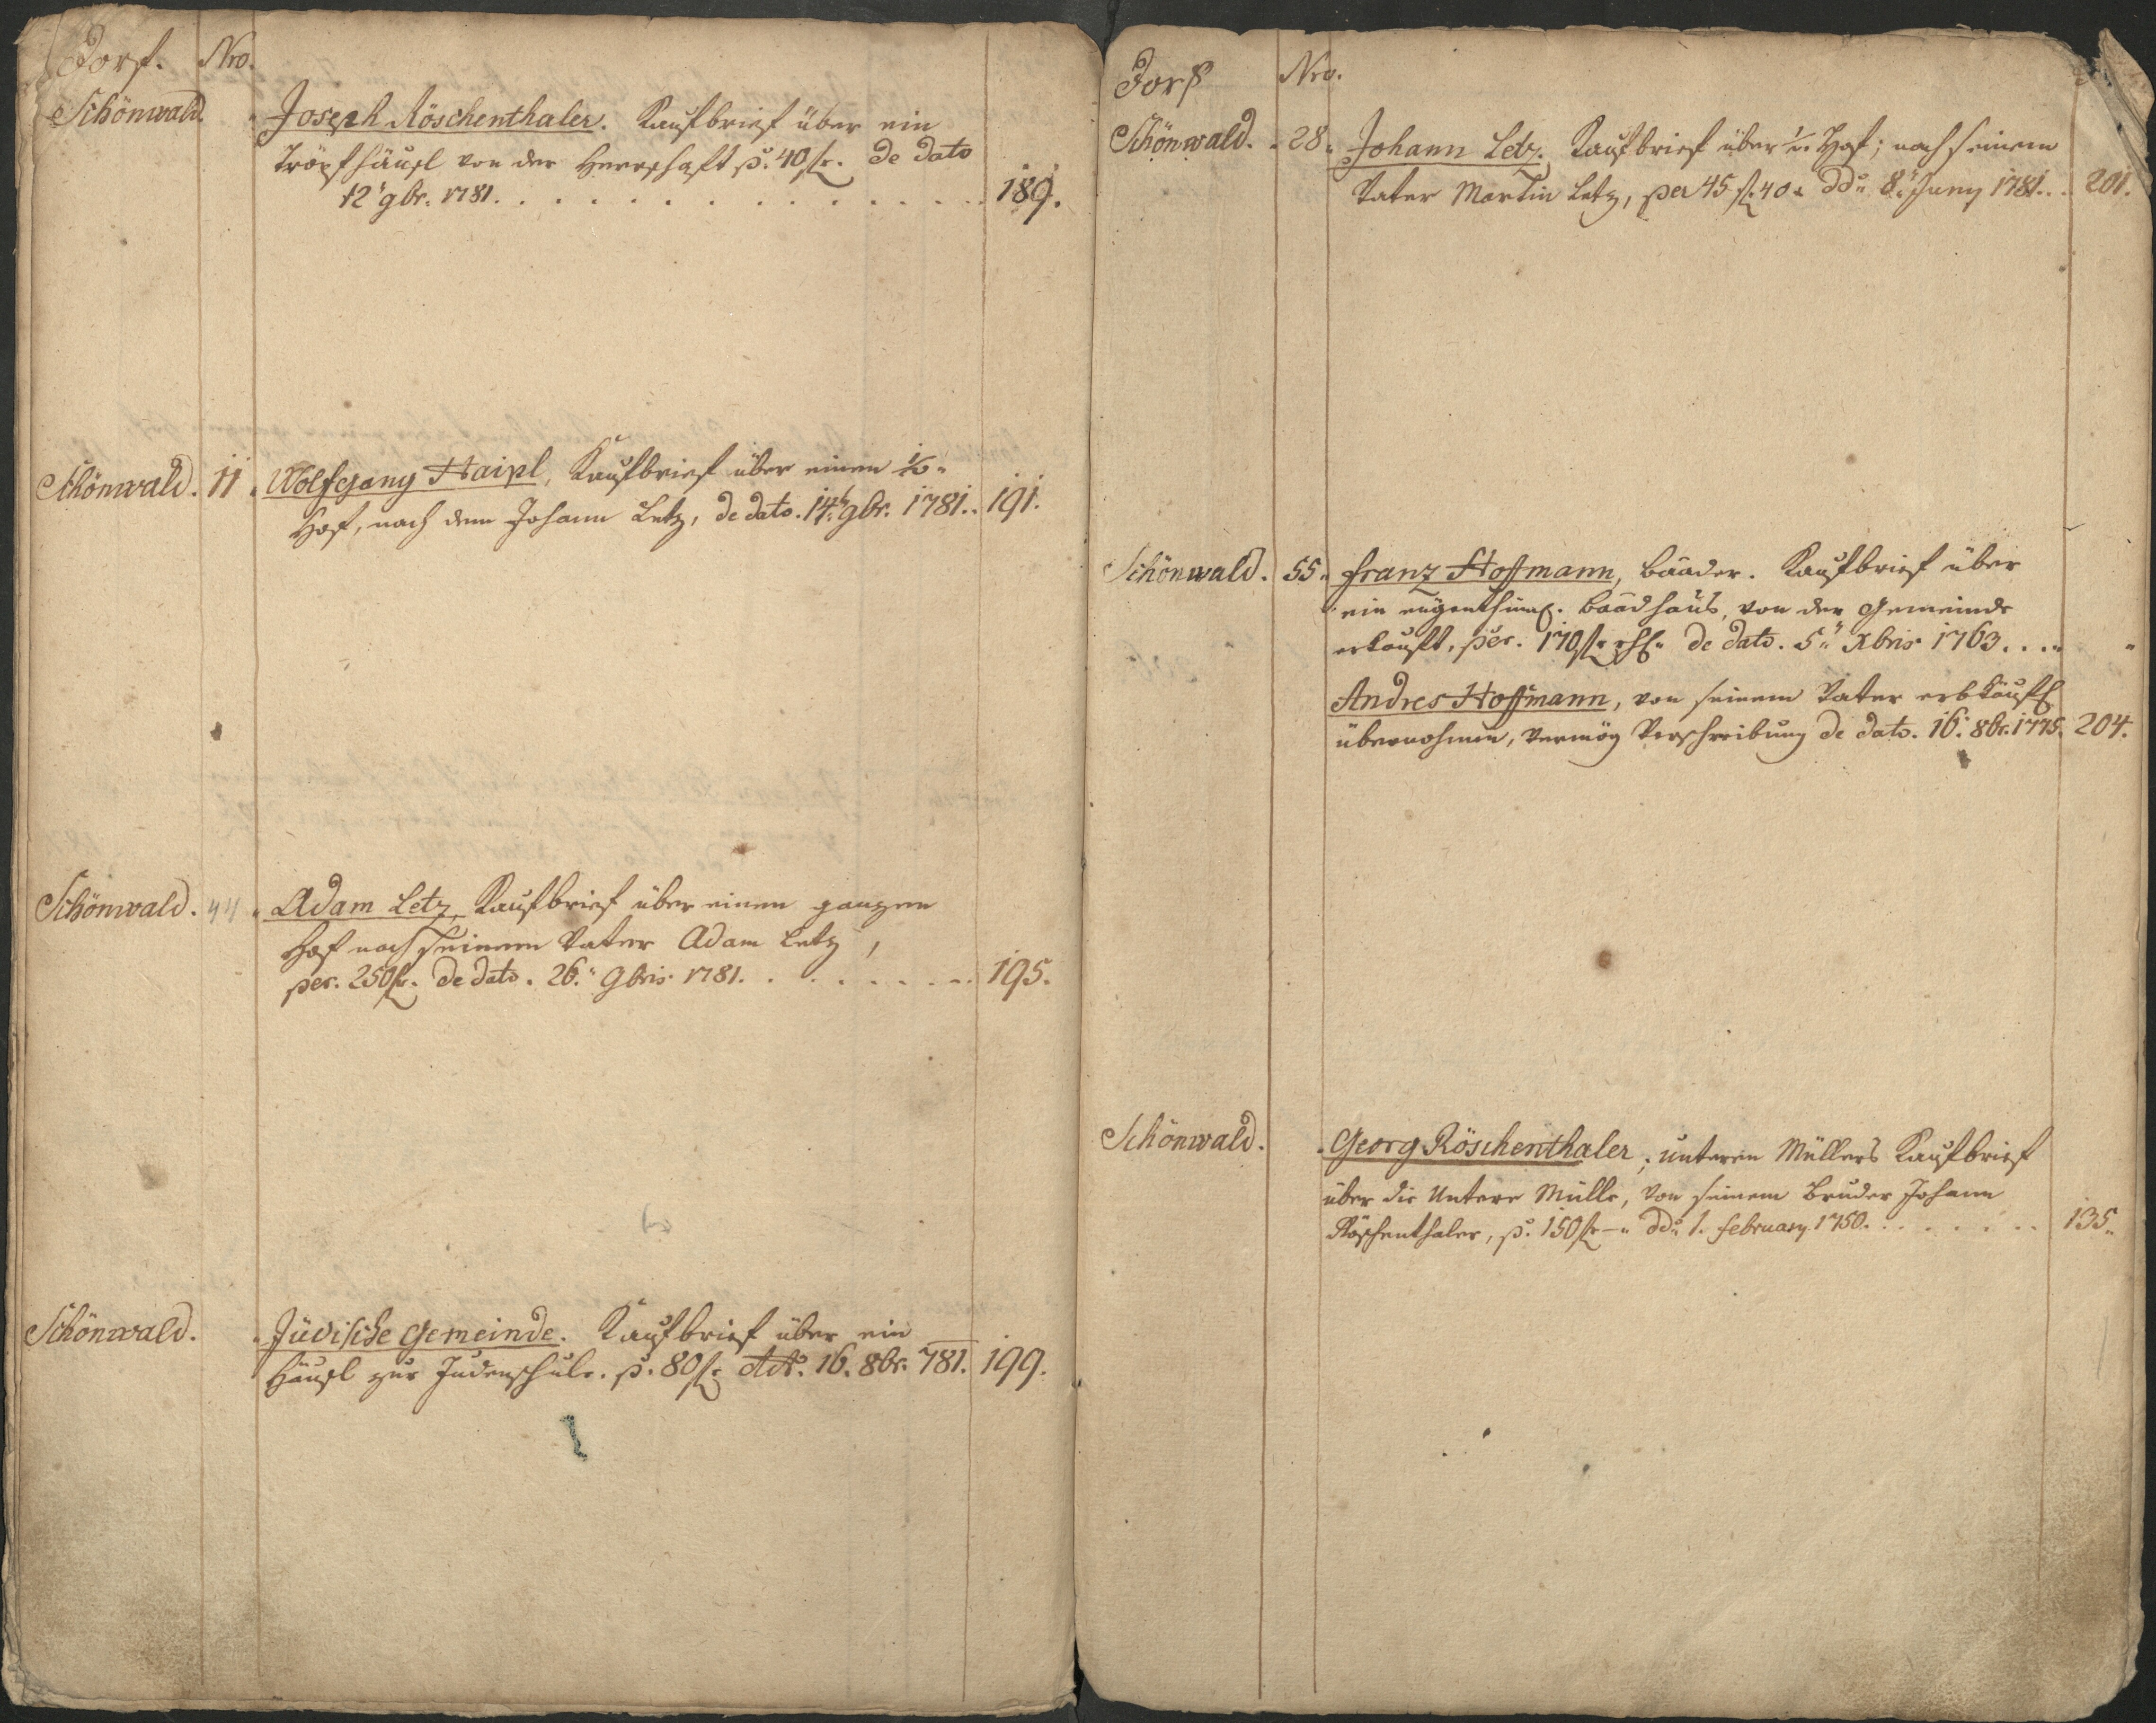 Dorf. Nro.
Schönwald. Joseph Röschenthaler. Kaufbrief über ein
Tröpfhäußl von der Herrschaft p. 40 fl. de dato
12t. 9br. 1781. 189.
Schönwald. 11. Wolfgang Haipl, Kaufbrief über einen
Hof, nach dem Johann Letz, de dato. 14t. 9br. 1781. 191.
Schönwald. 44 Adam Letz, Kaufbrief über einen ganzen
Hof nach seinem Vater Adam Letz,
per. 250 fl. de dato. 26. 9bris 1781. 195.
Schönwald. Jüdische Gemeinde. Kaufbrief über ein
Häußl zur Judenschule. p. 80 fl. 16. 8br. 781. 199.
Dorf Nro.
Schönwald. 28. Johann Letz. Kaufbrief über Hof; nach seinem
Vater Martin Letz, per 45 fl. 40 x ddo. 8. Juny 1781. 201.
Schönwald. 55. Franz Hoffmann, Baader. Kaufbrief über
ein eygenthüml. Baadhaus, von der Gemeinde
erkauft, per. 170 fl. rhl. de dato. 5. Xbris 1763.
Andres Hoffmann, von seinem Vater erbkäufl
übernohmen, vermög Verschreibung de dato. 16. 8br. 1775. 204.
Schönwald. Georg Röschenthaler, unteren Müllers Kaufbrief
über die Untere Mülle, von seinem Bruder Johann
Röschenthaler, p. 150 fl ddo. 1. February 1750. 135.